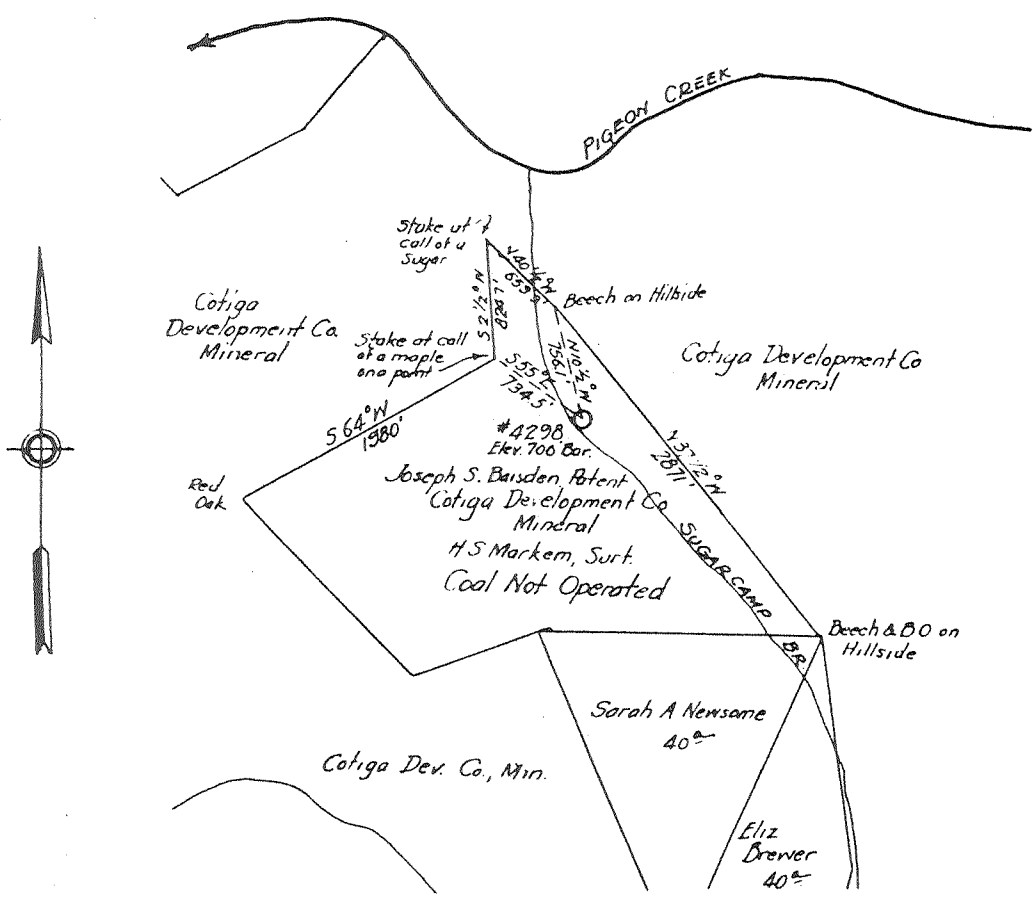 PIGEON CREEK
Stake at
call of a
Sugar
N40 1/4°W
659.9'
Beech on Hillside
S 2 1/2°W
824.7'
Cotiga
Development Co.
Mineral
Stake at call
of a maple
on a point
N10 1/2°W
756.1'
S55
734.5
Cotiga Development Co
Mineral
S 64°W
1980'
#4298
Elev. 700 Bar.
37 1/2°
2871'
Red
Oak
Joseph S. Baisden, Patent
Cotiga Development Co
Mineral
H S Markem, Surf.
Coal Not Operated
SUGARCAMP
BR.
Beech & B O on
Hillside
Sarah A Newsome
40 a
Cotiga Dev. Co., Min.
Eliz
Brewer
40 a